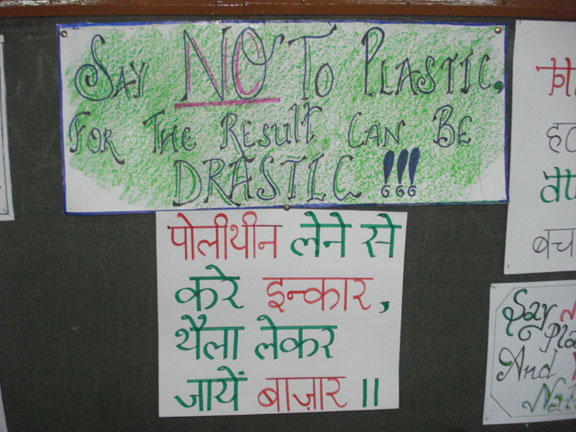 SAY NO TO PLASTIC,
FOR THE RESULT CAN BE
DRASTIC !!!
पोलीथीन लेने से
करे इन्कार,
थैला लेकर
जायें बाज़ार ।।
बचा
Say
And